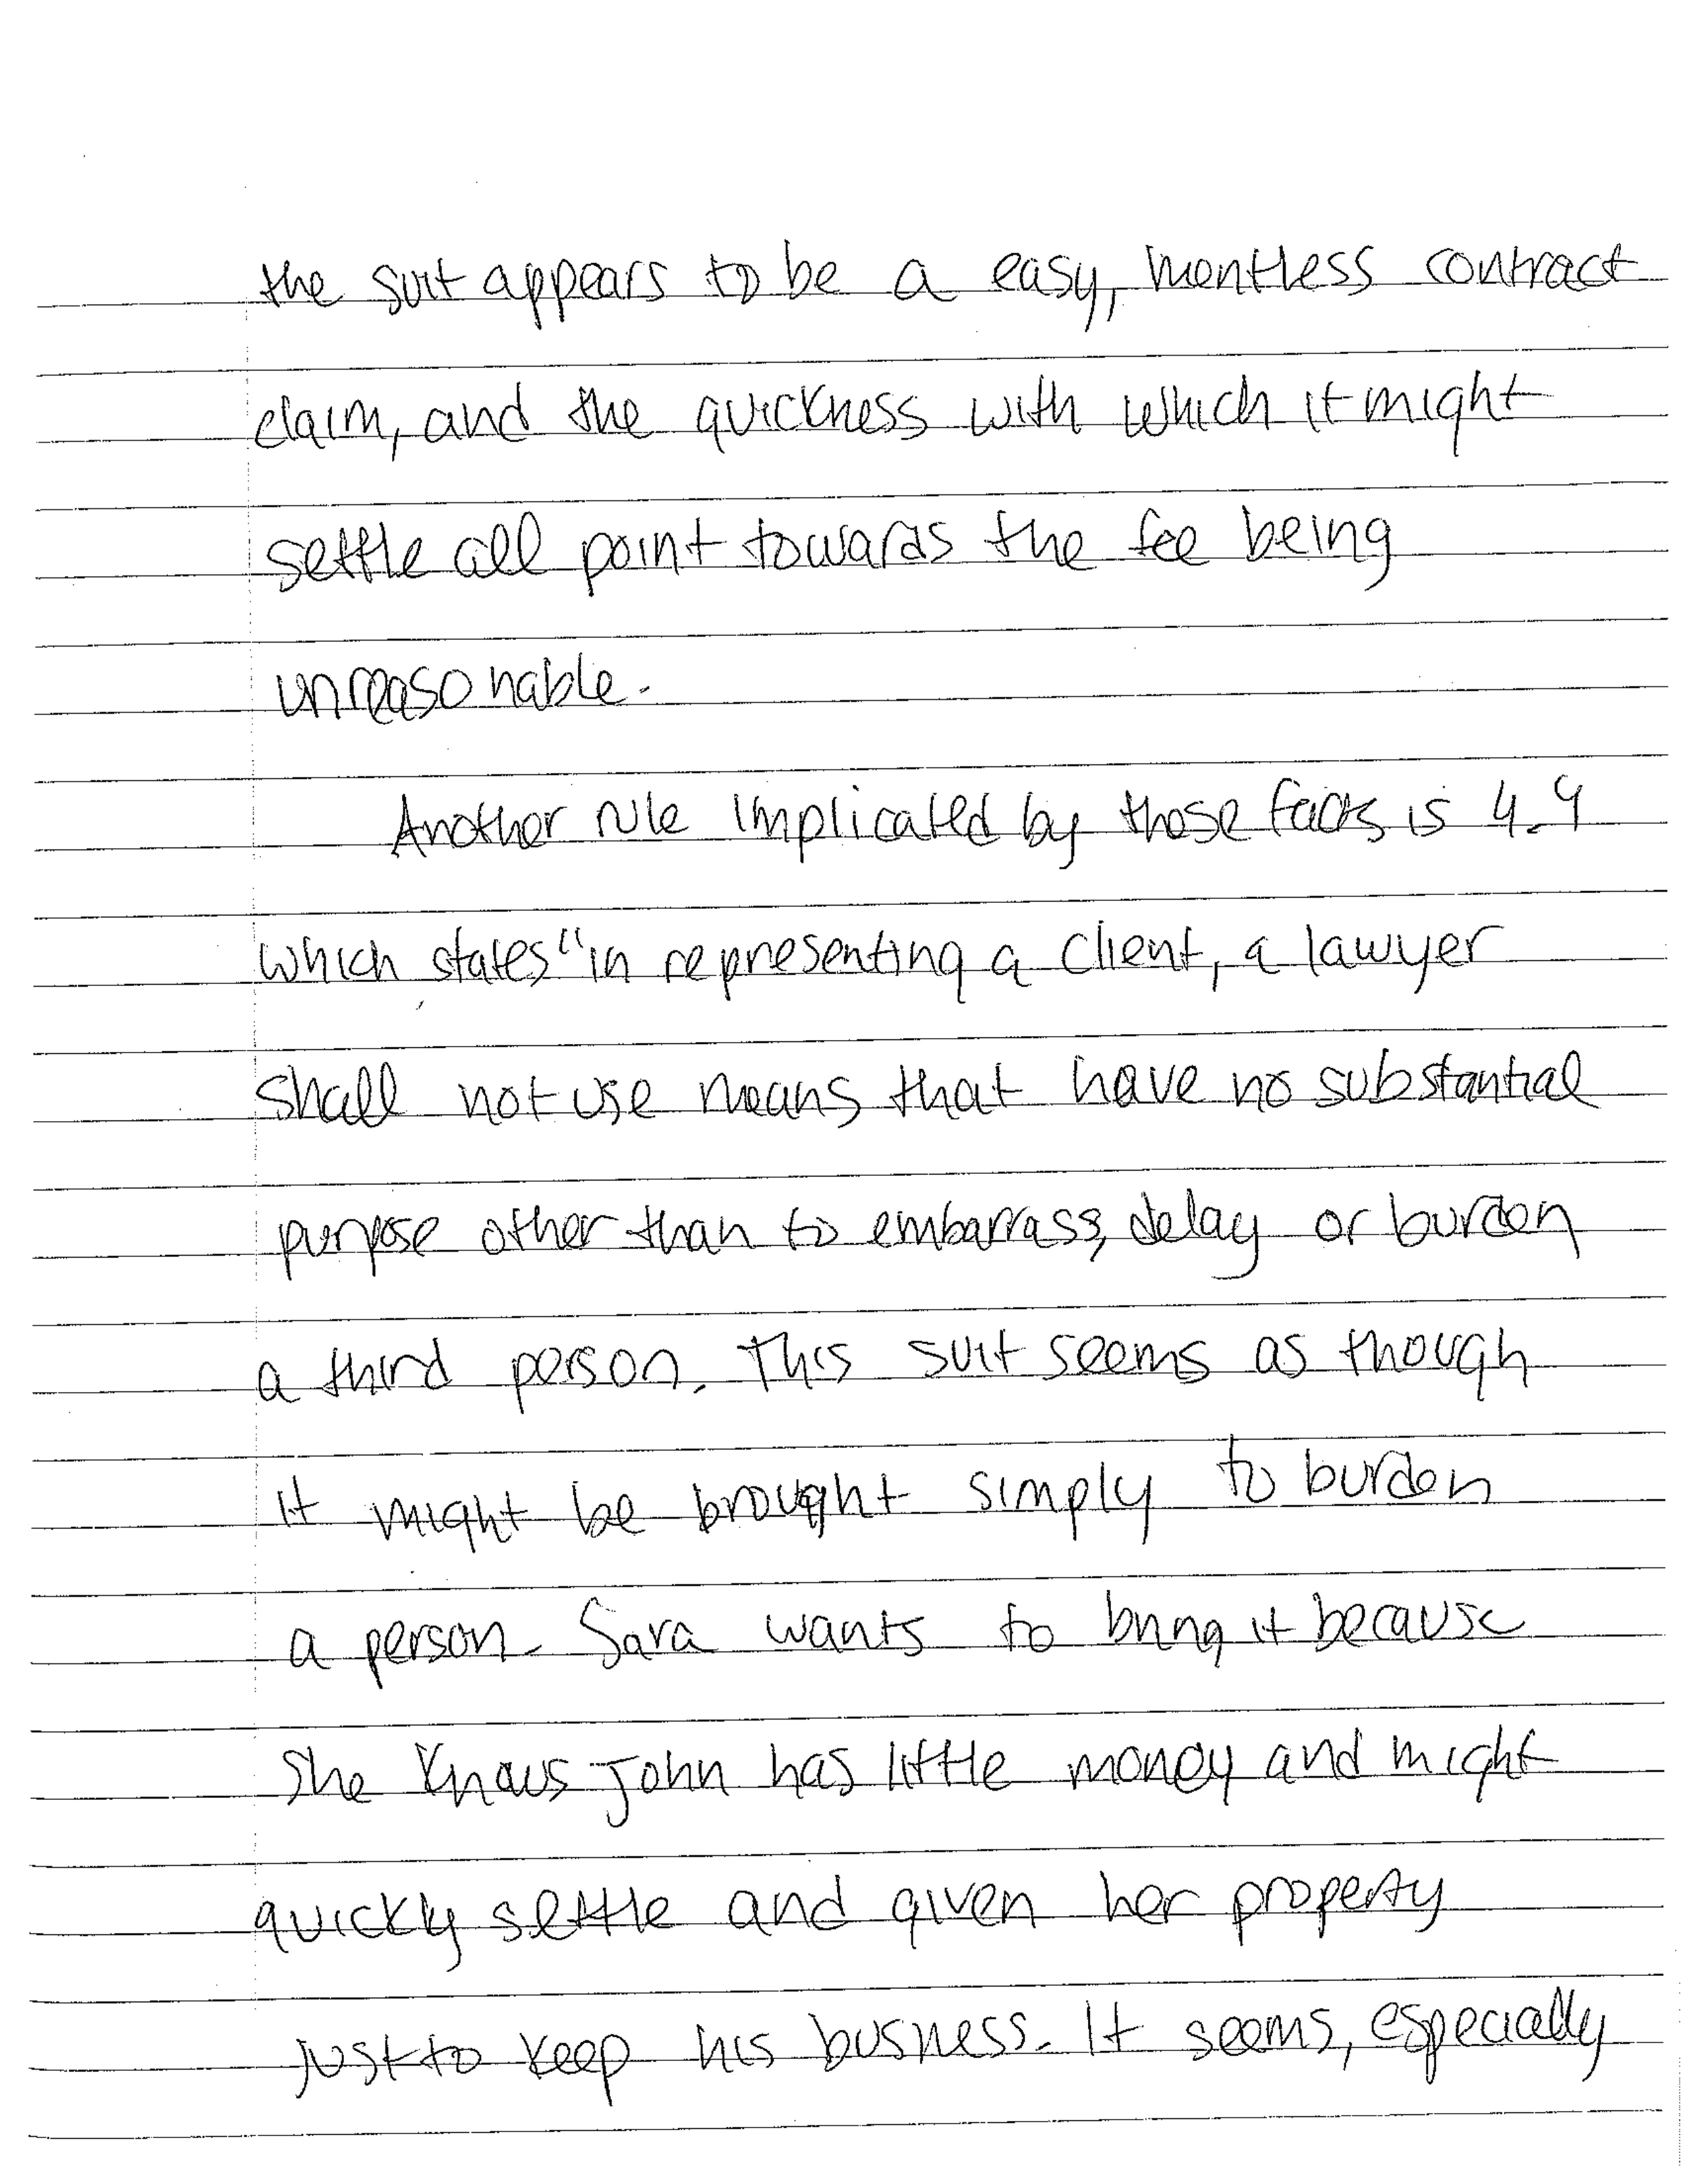 the suit appears to be a easy, meritless contract
claim, and the quickness with which it might
settle all point towards the fee being
unreasonable.
Another rule implicated by these facts is 4.4
which states "in representing a client, a lawyer
shall not use means that have no substantial
purpose other than to embarrass, delay or burden
a third person. This suit seems as though
it might be brought simply to burden
a person. Sara wants to bring it because
she knows John has little money and might
quickly settle and given her property
just to keep his business. It seems, especially